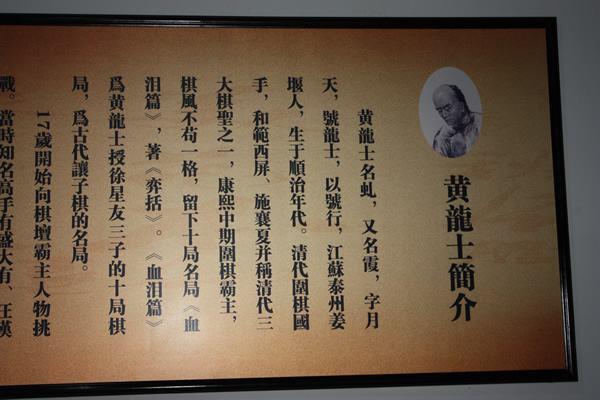 黄龍士簡介
黄龍士名虬，又名霞，字月
天，號龍士，以號行，江蘇泰州姜
堰人，生于順治年代。清代圍棋國
手，和範西屏、施襄夏并稱清代三
大棋聖之一，康熙中期圍棋霸主，
棋風不苟一格，留下十局名局《血
泪篇》，著《弈括》。《血泪篇》
爲黄龍士授徐星友三子的十局棋
局，爲古代讓子棋的名局。
17歲開始向棋壇霸主人物挑
戰。當時知名高手有盛大有、汪漢